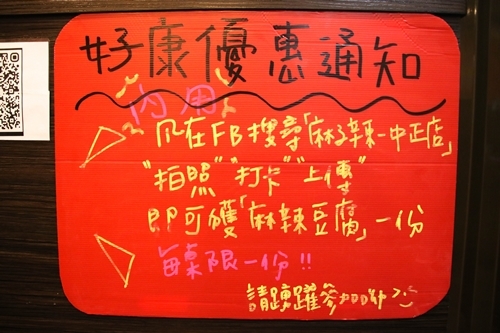 好康優惠通知
內用
凡在FB搜尋「麻子辣-中正店」
"拍照" "打卡" "上傳"
即可獲「麻辣豆腐」一份
每桌限一份!!
請踴躍參加呦